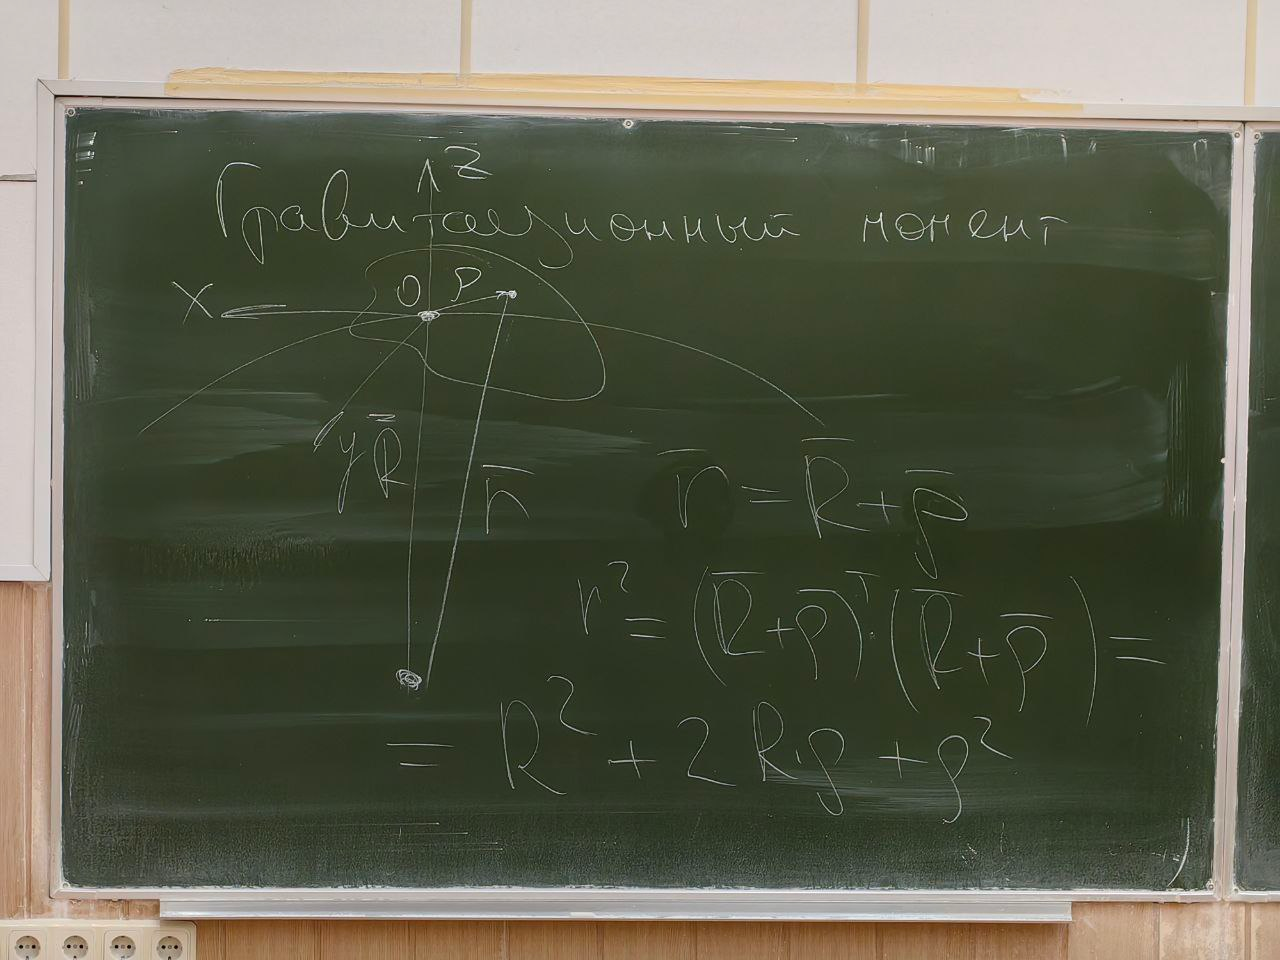 Гравитационный момент
z
x
O
ρ
y
R̄
r̄
r̄ = R̄ + ρ̄
r² = (R̄ + ρ̄)ᵀ · (R̄ + ρ̄) =
= R² + 2Rρ + ρ²